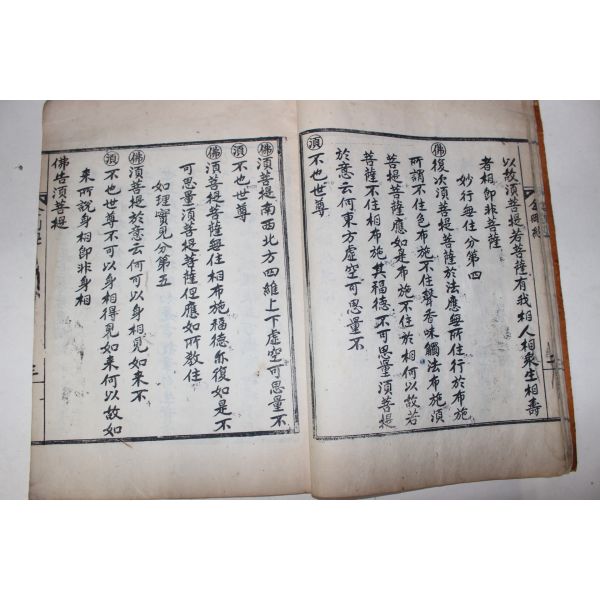 以故須菩提若菩薩有我相人相衆生相壽
者相卽非菩薩
妙行無住分第四
佛 復次須菩提菩薩於法應無所住行於布施
所謂不住色布施不住聲香味觸法布施須
菩提菩薩應如是布施不住於相何以故若
菩薩不住相布施其福德不可思量須菩提
於意云何東方虛空可思量不
須 不也世尊
佛 須菩提南西北方四維上下虛空可思量不
須 不也世尊
佛 須菩提菩薩無住相布施福德亦復如是不
可思量須菩提菩薩但應如所敎住
如理實見分第五
佛 須菩提於意云何可以身相見如來不
須 不也世尊不可以身相得見如來何以故如
來所說身相卽非身相
佛告須菩提
金剛經
二
三